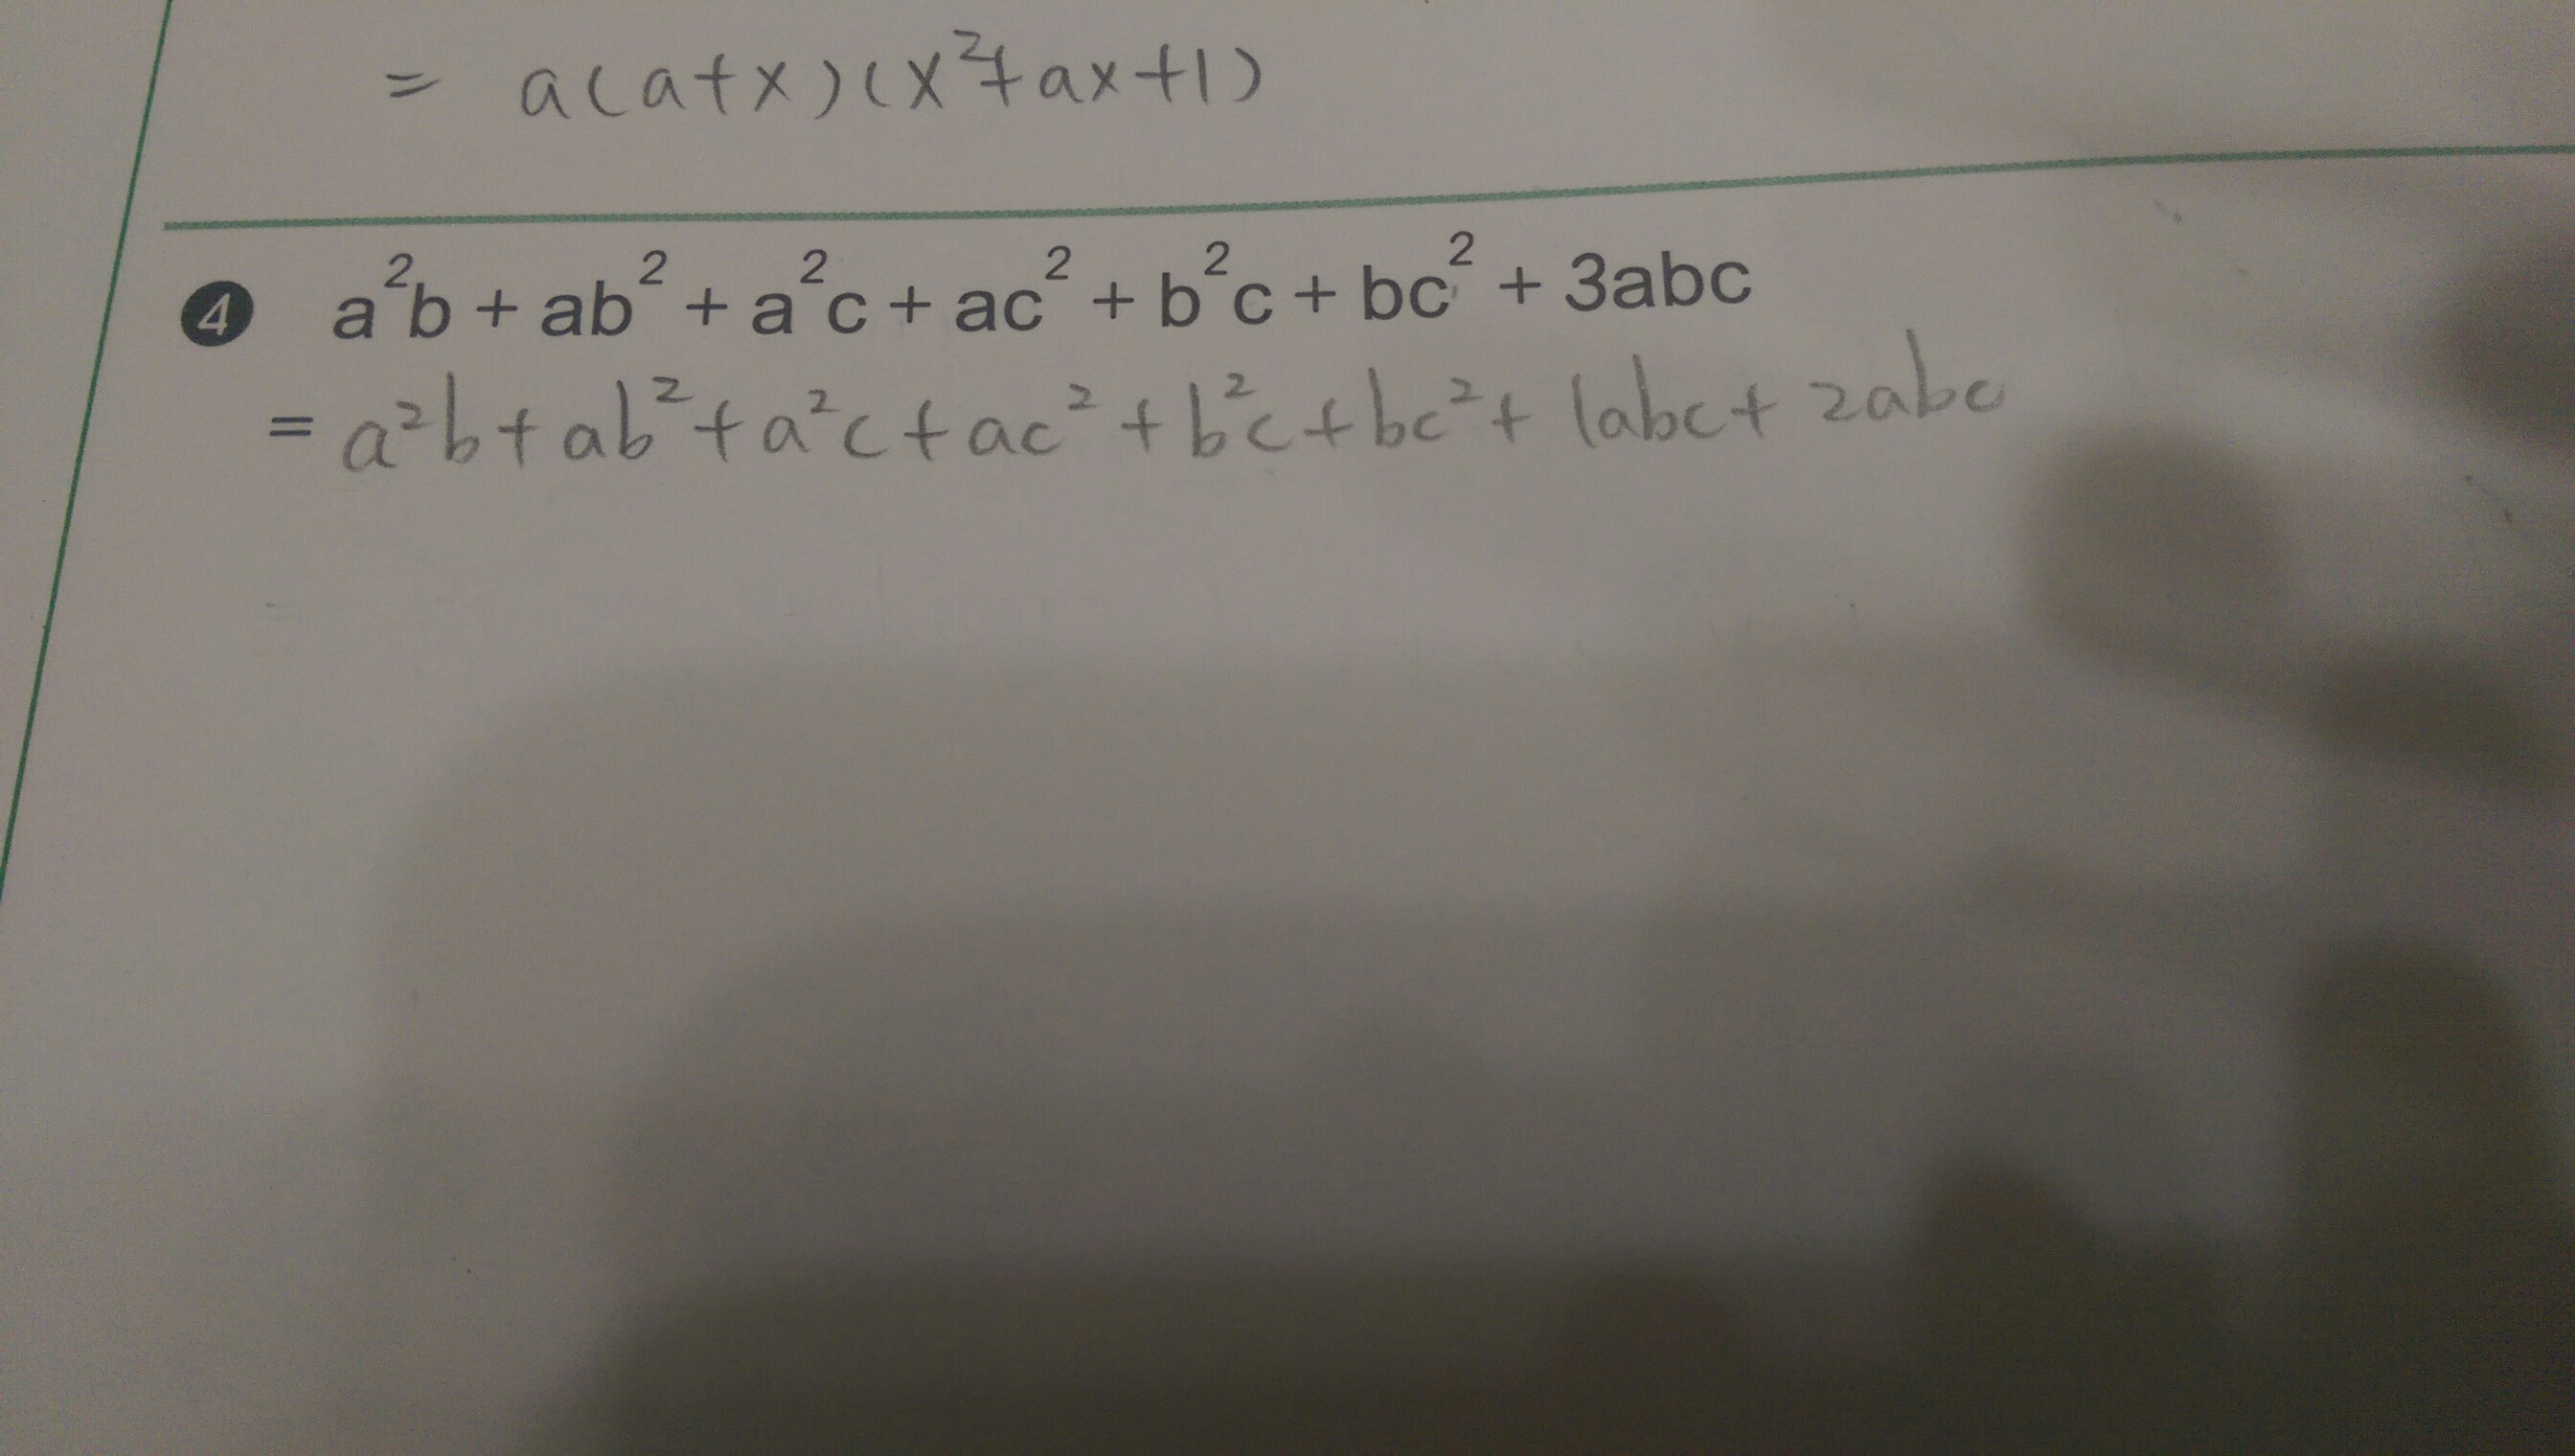 = a(a+x)(x²+ax+1)
4 a²b + ab² + a²c + ac² + b²c + bc² + 3abc
= a²b + ab² + a²c + ac² + b²c + bc² + 1abc + 2abc